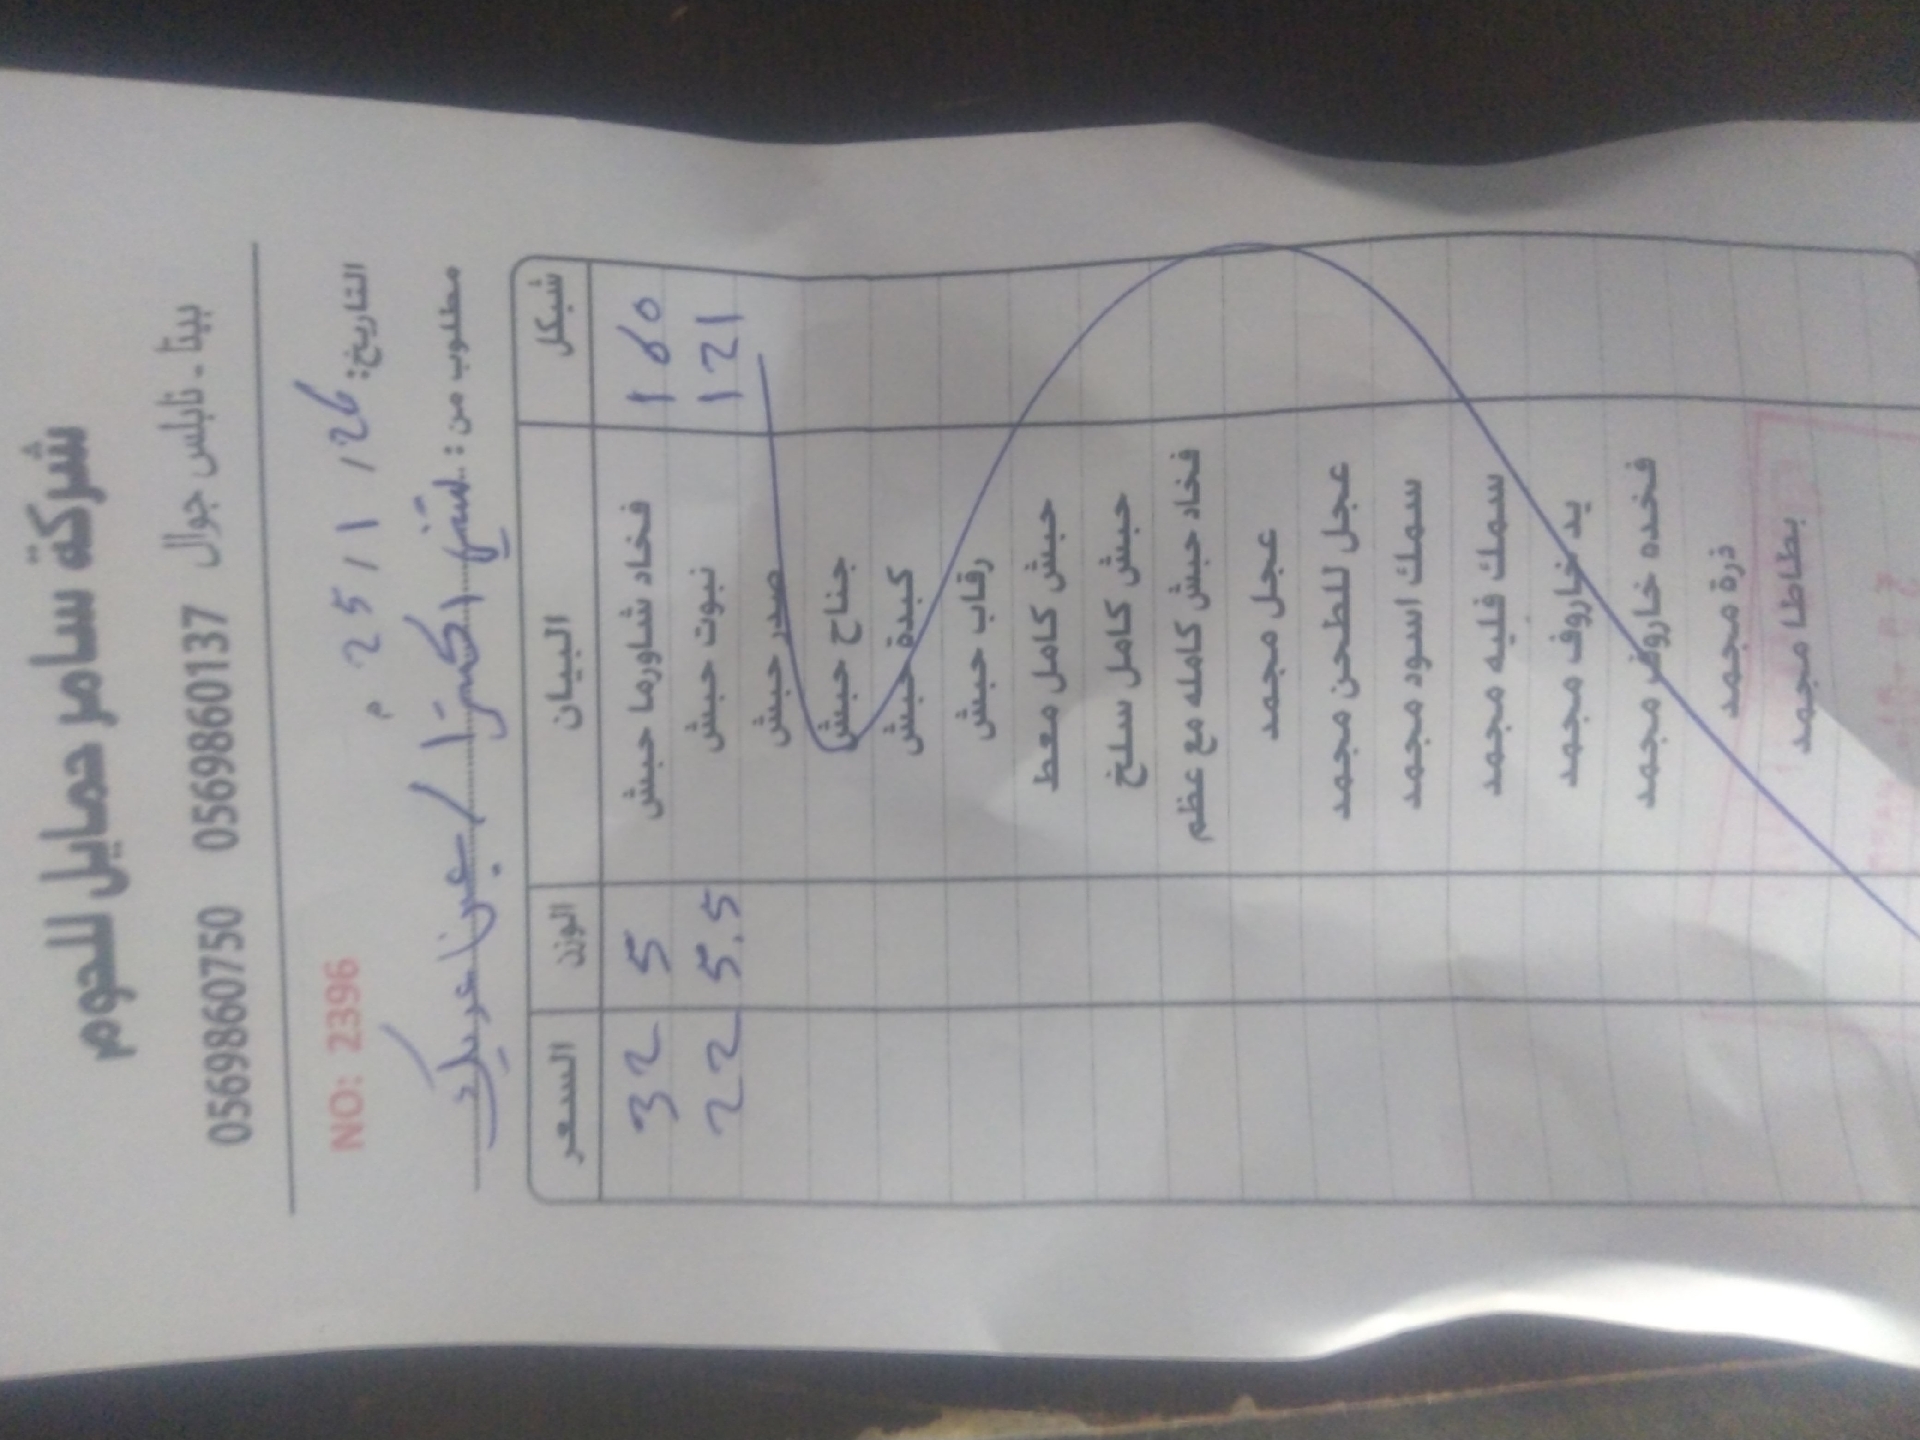 شركة سامر حمايل للحوم
بيتا - نابلس جوال 0569860137 0569860750
التاريخ: 26 / 1 / 25 م
NO: 2396
مطلوب من : اكسترا /
شيكل البيان الوزن السعر
160 فخاد شاورما حبش 5 32
121 نبوت حبش 5.5 22
صدر حبش
جناح حبش
كبدة حبش
رقاب حبش
حبش كامل معط
حبش كامل سلخ
فخاد حبش كامله مع عظم
عجل مجمد
عجل للطحن مجمد
سمك اسود مجمد
سمك فليه مجمد
يد خاروف مجمد
فخده خاروف مجمد
ذرة مجمد
بطاطا مجمد